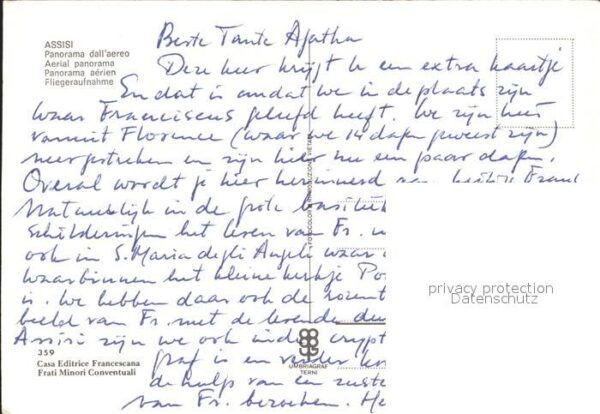 ASSISI
Panorama dall'aereo
Aerial panorama
Panorama aérien
Fliegeraufnahme
Beste Tante Agatha
Deze keer krijgt U een extra kaartje
En dat is omdat we in de plaats zijn
waar Franciscus geleefd heeft. We zijn hier
vanuit Florence (waar we 14 dagen geweest zijn)
neergestreken en zijn hier nu een paar dagen.
Overal wordt je hier herinnerd aan
Natuurlijk in de grote basiliek
schilderingen het leven van Fr.
ook in S. Maria degli Angeli waar
waarbinnen het kleine kerkje Po
is. We hebben daar ook de
beeld van Fr. met de levende
Assisi zijn we ook in de crypt
graf is en verder
de hulp van een zuster
van Fr. bezoeken. He
FOTOCOLOR RIPRODUZIONE VIETATA
359
Casa Editrice Francescana
Frati Minori Conventuali
UMBRIAGRAF
TERNI
privacy protection
Datenschutz